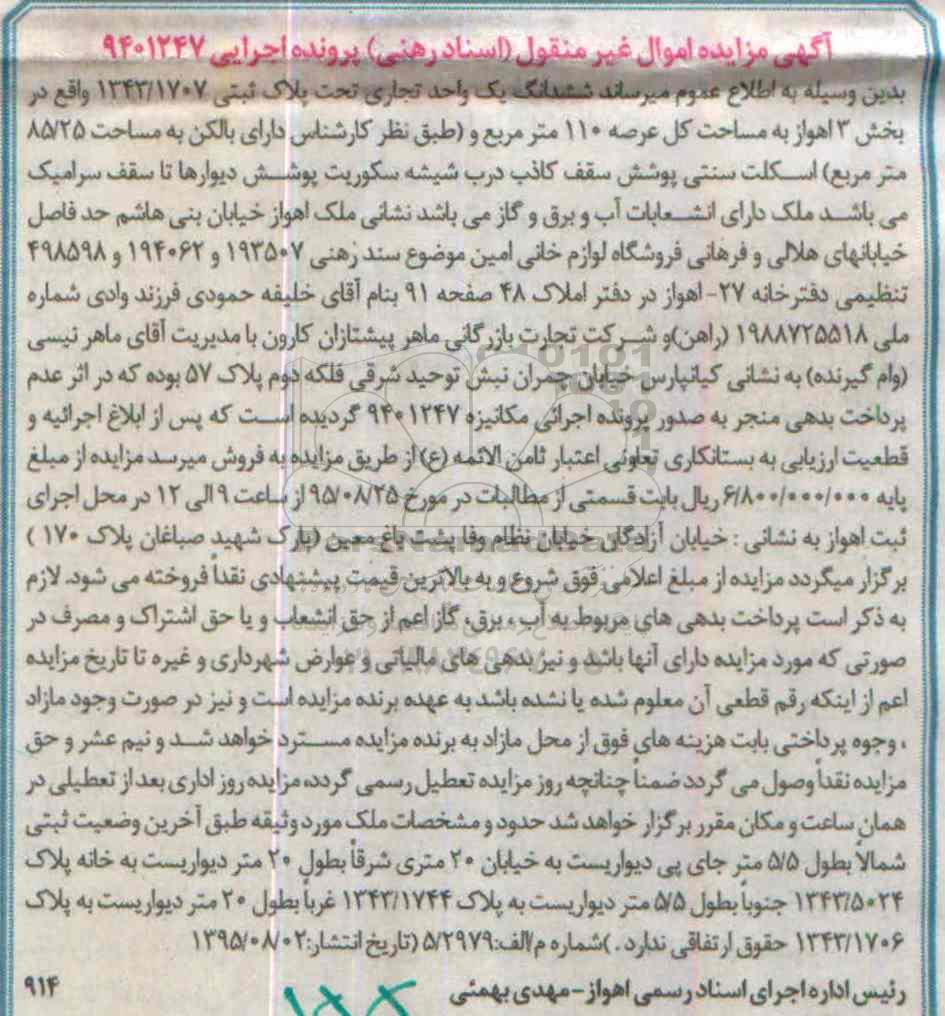 آگهی مزایده اموال غیر منقول (اسناد رهنی) پرونده اجرایی ۹۴۰۱۲۴۷
بدین وسیله به اطلاع عموم میرساند ششدانگ یک واحد تجاری تحت پلاک ثبتی ۱۳۴۳/۱۷۰۷ واقع در
بخش ۳ اهواز به مساحت کل عرصه ۱۱۰ متر مربع و (طبق نظر کارشناس دارای بالکن به مساحت ۸۵/۲۵
متر مربع) اسکلت سنتی پوشش سقف کاذب درب شیشه سکوریت پوشش دیوارها تا سقف سرامیک
می باشد ملک دارای انشعابات آب و برق و گاز می باشد نشانی ملک اهواز خیابان بنی هاشم حد فاصل
خیابانهای هلالی و فرهانی فروشگاه لوازم خانی امین موضوع سند رهنی ۱۹۳۵۰۷ و ۱۹۴۰۶۲ و ۴۹۸۵۹۸
تنظیمی دفترخانه ۲۷- اهواز در دفتر املاک ۴۸ صفحه ۹۱ بنام آقای خلیفه حمودی فرزند وادی شماره
ملی ۱۹۸۸۷۲۵۵۱۸ (راهن)و شرکت تجارت بازرگانی ماهر پیشتازان کارون با مدیریت آقای ماهر نیسی
(وام گیرنده) به نشانی کیانپارس خیابان چمران نبش توحید شرقی فلکه دوم پلاک ۵۷ بوده که در اثر عدم
پرداخت بدهی منجر به صدور پرونده اجرائی مکانیزه ۹۴۰۱۲۴۷ گردیده است که پس از ابلاغ اجرائیه و
قطعیت ارزیابی به بستانکاری تعاونی اعتبار ثامن الائمه (ع) از طریق مزایده به فروش میرسد مزایده از مبلغ
پایه ۶/۸۰۰/۰۰۰/۰۰۰ ریال بابت قسمتی از مطالبات در مورخ ۹۵/۰۸/۲۵ از ساعت ۹ الی ۱۲ در محل اجرای
ثبت اهواز به نشانی : خیابان آزادگان خیابان نظام وفا پشت باغ معین (پارک شهید صباغان پلاک ۱۷۰ )
برگزار میگردد مزایده از مبلغ اعلامی فوق شروع و به بالاترین قیمت پیشنهادی نقداً فروخته می شود. لازم
به ذکر است پرداخت بدهی های مربوط به آب ، برق، گاز اعم از حق انشعاب و یا حق اشتراک و مصرف در
صورتی که مورد مزایده دارای آنها باشد و نیز بدهی های مالیاتی و عوارض شهرداری و غیره تا تاریخ مزایده
اعم از اینکه رقم قطعی آن معلوم شده یا نشده باشد به عهده برنده مزایده است و نیز در صورت وجود مازاد
، وجوه پرداختی بابت هزینه های فوق از محل مازاد به برنده مزایده مسترد خواهد شد و نیم عشر و حق
مزایده نقداً وصول می گردد ضمناً چنانچه روز مزایده تعطیل رسمی گردد، مزایده روز اداری بعد از تعطیلی در
همان ساعت و مکان مقرر برگزار خواهد شد حدود و مشخصات ملک مورد وثیقه طبق آخرین وضعیت ثبتی
شمالاً بطول ۵/۵ متر جای پی دیواریست به خیابان ۲۰ متری شرقاً بطول ۲۰ متر دیواریست به خانه پلاک
۱۳۴۳/۵۰۲۴ جنوباً بطول ۵/۵ متر دیواریست به پلاک ۱۳۴۳/۱۷۴۴ غرباً بطول ۲۰ متر دیواریست به پلاک
۱۳۴۳/۱۷۰۶ حقوق ارتفاقی ندارد . )شماره م/الف:۵/۲۹۷۹ (تاریخ انتشار:۱۳۹۵/۰۸/۰۲
رئیس اداره اجرای اسناد رسمی اهواز - مهدی بهمئی
۹۱۴